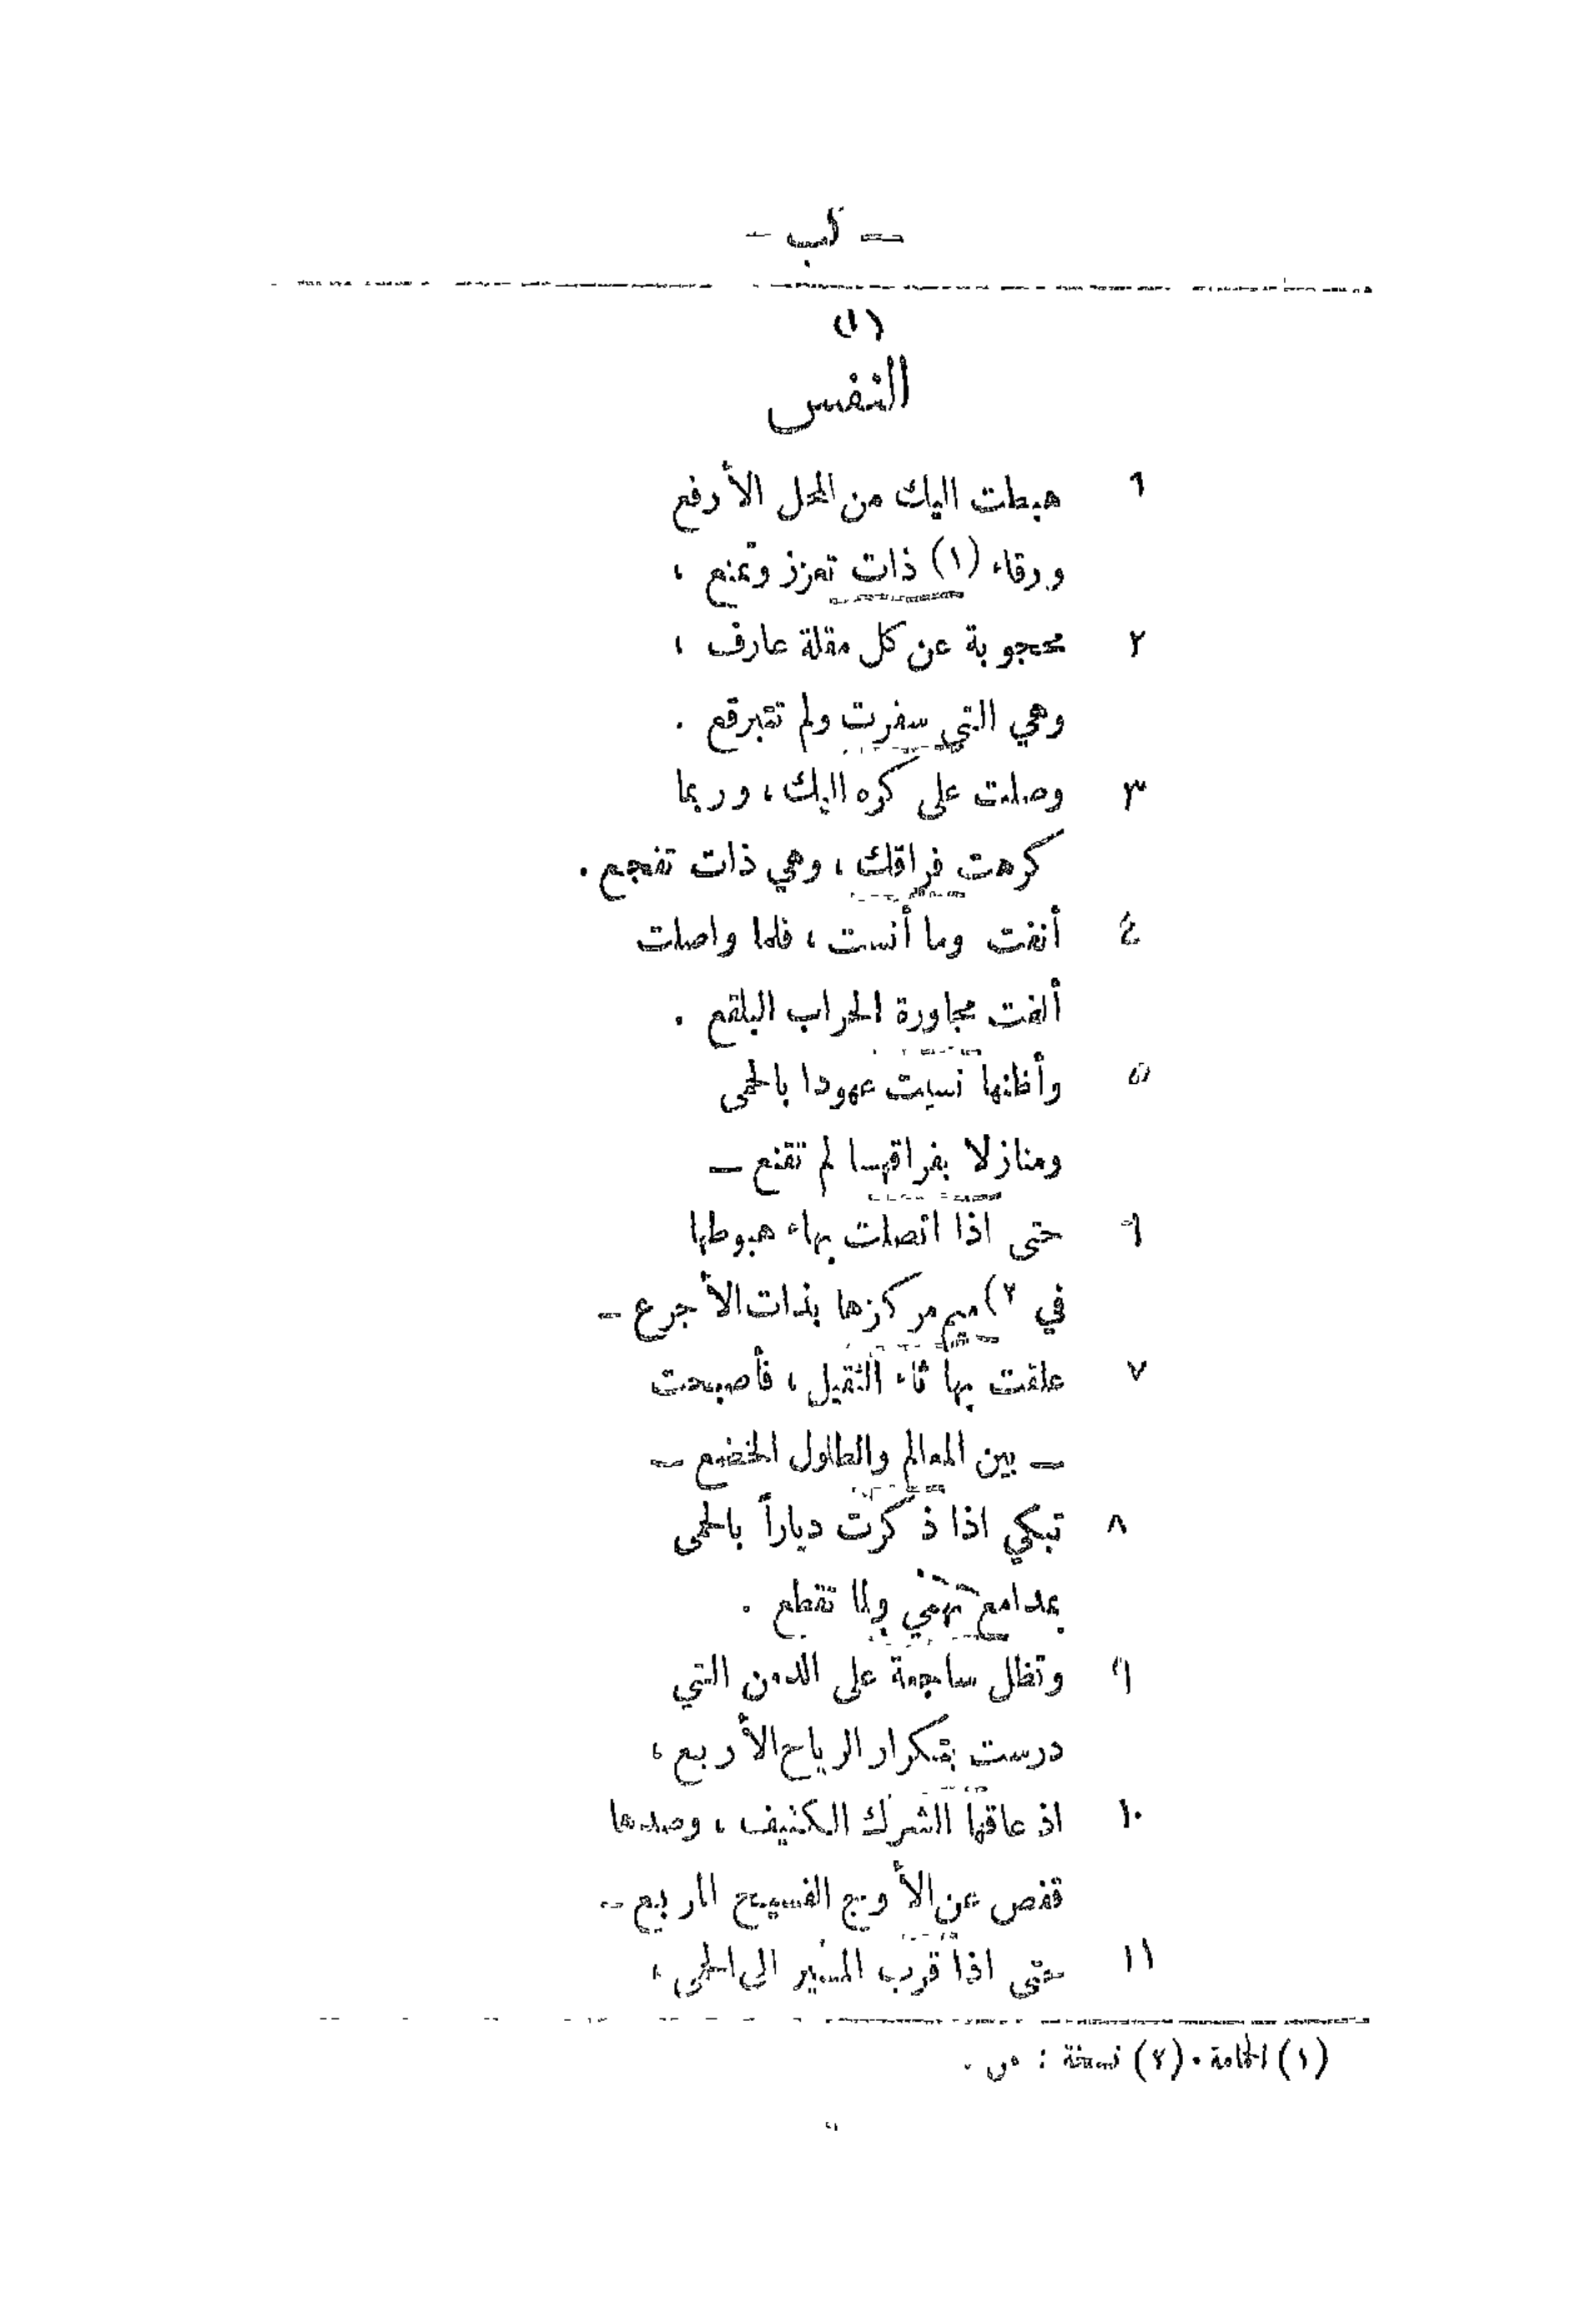 — كب —
(١)
النفس
١ هبطت اليك من المحل الأرفع
ورقاء (١) ذات تعزز وتمنع ،
٢ محجوبة عن كل مقلة عارف ،
وهي التي سفرت ولم تتبرقع .
٣ وصلت على كره اليك ، وربما
كرهت فراقك ، وهي ذات تفجع .
٤ أنفت وما أنست ، فلما واصلت
ألفت مجاورة الخراب البلقع .
٥ وأظنها نسيت عهودا بالحمى
ومنازلا بفراقها لم تقنع —
٦ حتى اذا اتصلت بهاء هبوطها
في ٢) ميم مركزها بذات الأجرع —
٧ علقت بها ثاء الثقيل ، فأصبحت
— بين المعالم والطلول الخضع —
٨ تبكي اذا ذكرت دياراً بالحمى
بمدامع تهمي ولما تقطع .
٩ وتظل ساجعة على الدمن التي
درست بتكرار الرياح الأربع ،
١٠ اذ عاقها الشرك الكثيف ، وصدها
قفص عن الأوج الفسيح المربع —
١١ حتى اذا قرب المسير الى الحمى ،
(١) الحمامة . (٢) نسخة : من .